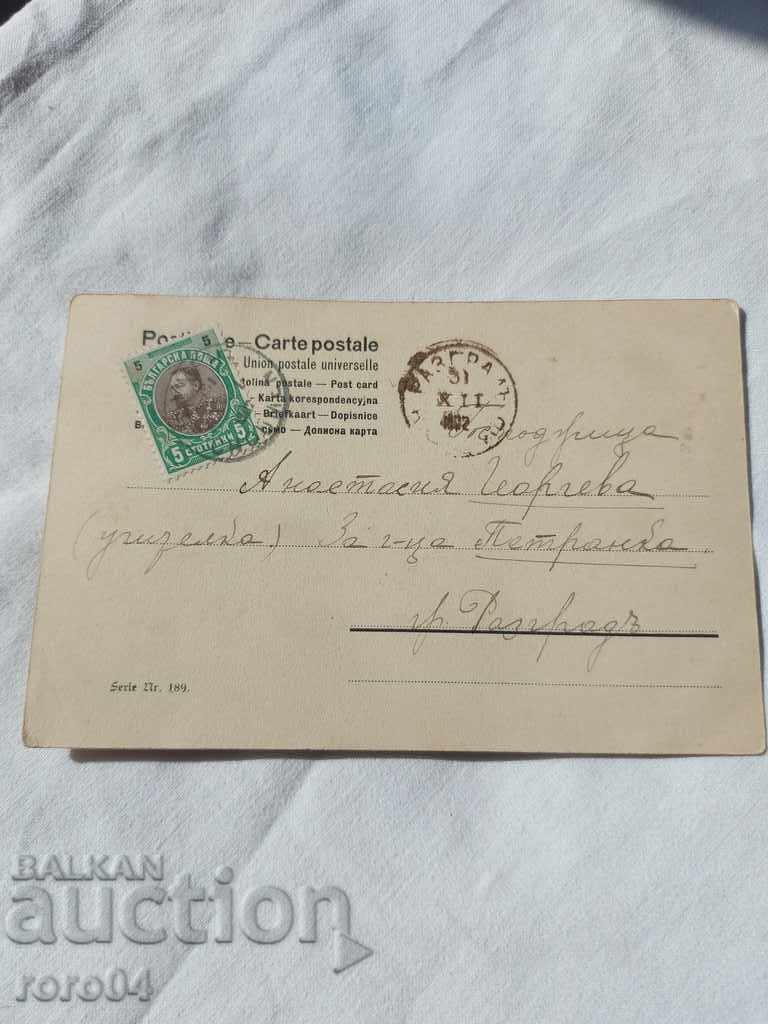 Po e — Carte postale
— Union postale universelle
tolina postale — Post card
— Karta korespondencyjna
— Briefkaart — Dopisnice
сьмо — Дописна карта
5 5
БЪЛГАРСКА ПОЩА
5 СТОТИНКИ 5
РАЗГРАДЪ
31
XII
1902
Господжица
Анастасия Георгева
(учителка) За г-ца Петранка.
гр. Разградъ
Serie Nr. 189.
BALKAN
auction
roro04